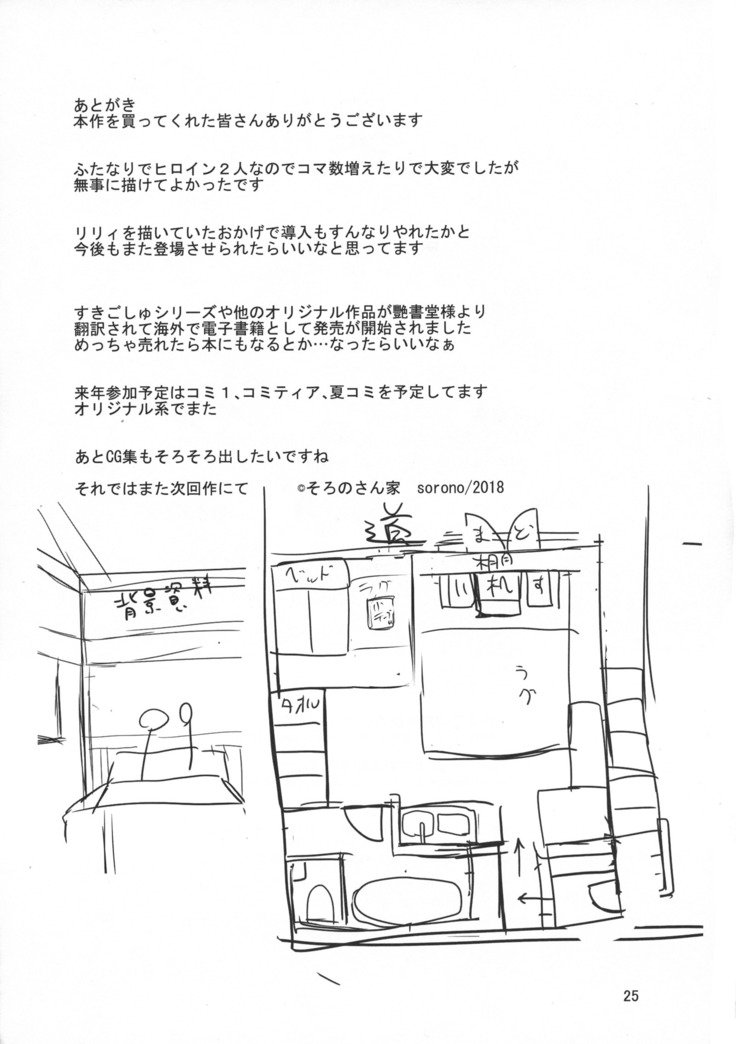 あとがき
本作を買ってくれた皆さんありがとうございます
ふたなりでヒロイン２人なのでコマ数増えたりで大変でしたが
無事に描けてよかったです
リリィを描いていたおかげで導入もすんなりやれたかと
今後もまた登場させられたらいいなと思ってます
すきごしゅシリーズや他のオリジナル作品が艶書堂様より
翻訳されて海外で電子書籍として発売が開始されました
めっちゃ売れたら本にもなるとか…なったらいいなぁ
来年参加予定はコミ１、コミティア、夏コミを予定してます
オリジナル系でまた
あとCG集もそろそろ出したいですね
それではまた次回作にて ©そろのさん家 sorono/2018
道
まど
棚
ベッド
ラグ
いす
机
背景資料
ラグ
タオル
25